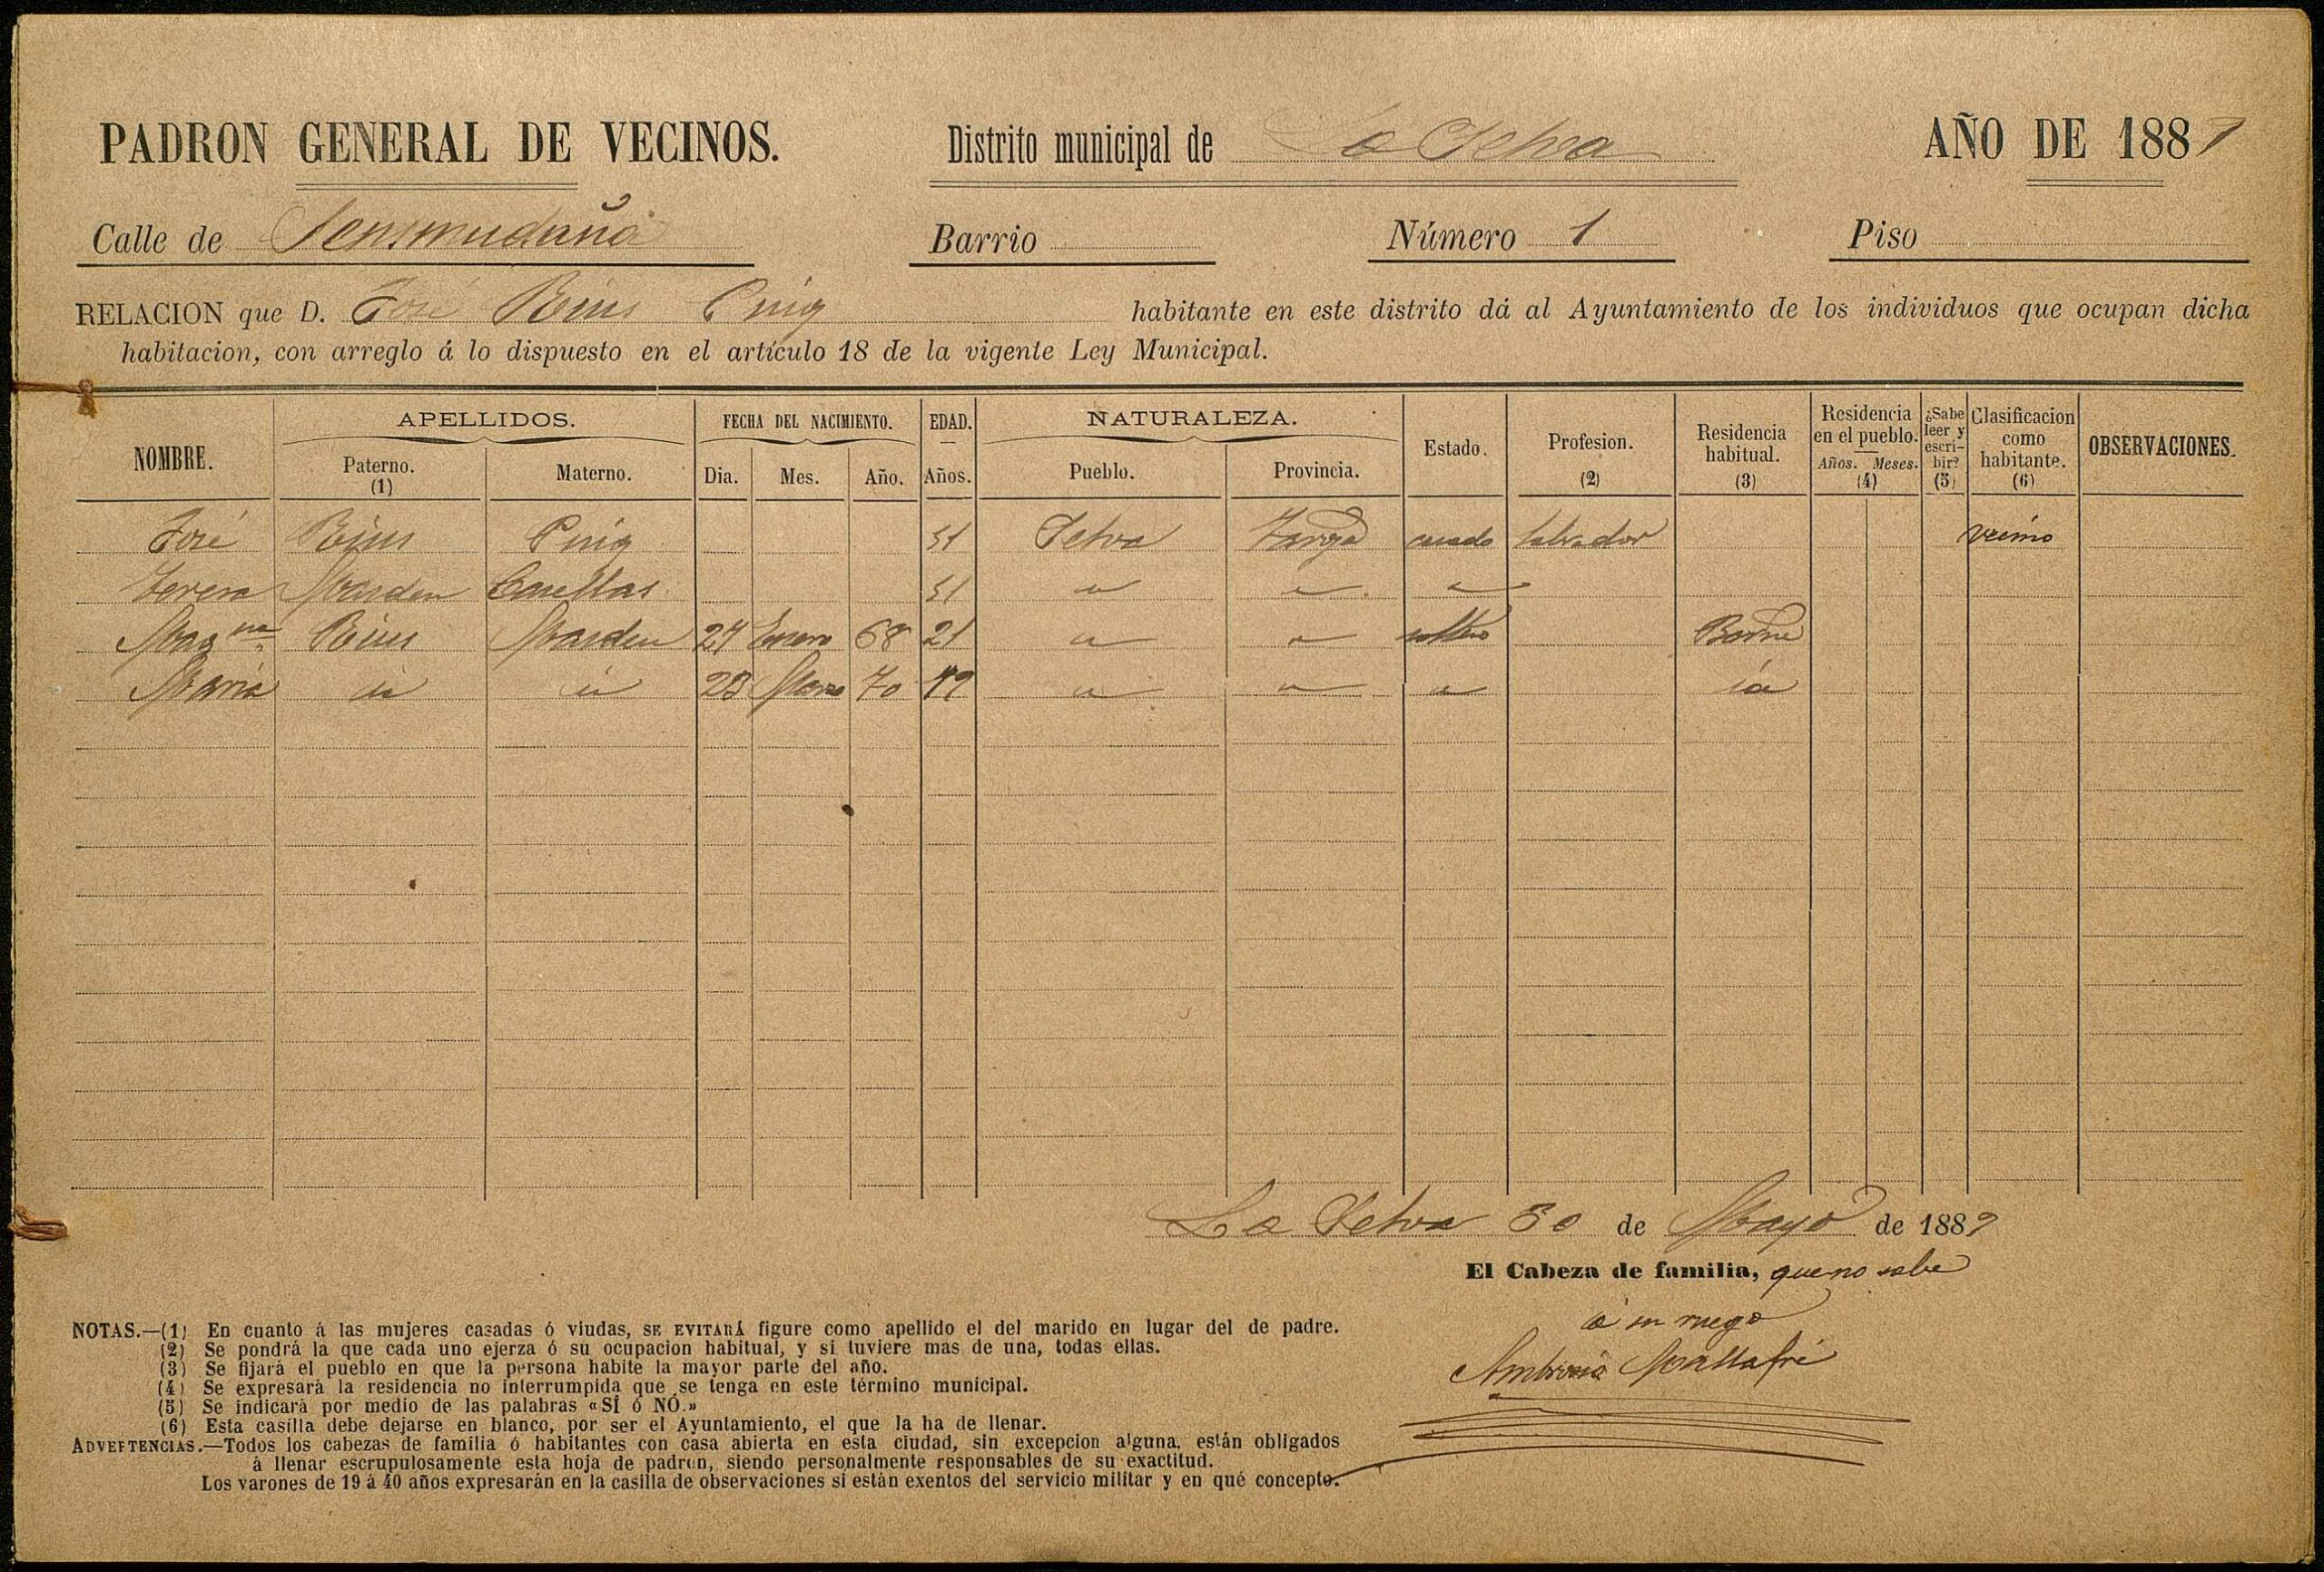 PADRON GENERAL DE VECINOS. Distrito municipal de La Selva AÑO DE 1889
Calle de Barrio Número 1 Piso
RELACION que D. José Rius Puig habitante en este distrito dá al Ayuntamiento de los individuos que ocupan dicha
habitacion, con arreglo á lo dispuesto en el artículo 18 de la vigente Ley Municipal.
NOMBRE. APELLIDOS. FECHA DEL NACIMIENTO. EDAD. NATURALEZA. Estado. Profesion. (2) Residencia habitual. (3) Residencia en el pueblo. Años. Meses. (4) ¿Sabe leer y escribir? (5) Clasificacion como habitante. (6) OBSERVACIONES.
Paterno. (1) Materno. Dia. Mes. Año. Años. Pueblo. Provincia.
José Rius Puig 51 Selva Tarrgª casado labrador vecino
Teresa 51 " " "
Magna Rius 24 Enero 68 21 " " soltero
Maria id id 70 19 " " " id
La Selva 30 de Mayo de 1889
El Cabeza de familia, que no sabe
á su ruego
Ambrosio Mallafré
NOTAS.—(1) En cuanto á las mujeres casadas ó viudas, SE EVITARÁ figure como apellido el del marido en lugar del de padre.
(2) Se pondrá la que cada uno ejerza ó su ocupacion habitual, y si tuviere mas de una, todas ellas.
(3) Se fijará el pueblo en que la persona habite la mayor parte del año.
(4) Se expresará la residencia no interrumpida que se tenga en este término municipal.
(5) Se indicará por medio de las palabras «SÍ ó NÓ.»
(6) Esta casilla debe dejarse en blanco, por ser el Ayuntamiento, el que la ha de llenar.
ADVERTENCIAS.—Todos los cabezas de familia ó habitantes con casa abierta en esta ciudad, sin excepcion alguna, están obligados
á llenar escrupulosamente esta hoja de padron, siendo personalmente responsables de su exactitud.
Los varones de 19 á 40 años expresarán en la casilla de observaciones si están exentos del servicio militar y en qué concepto.